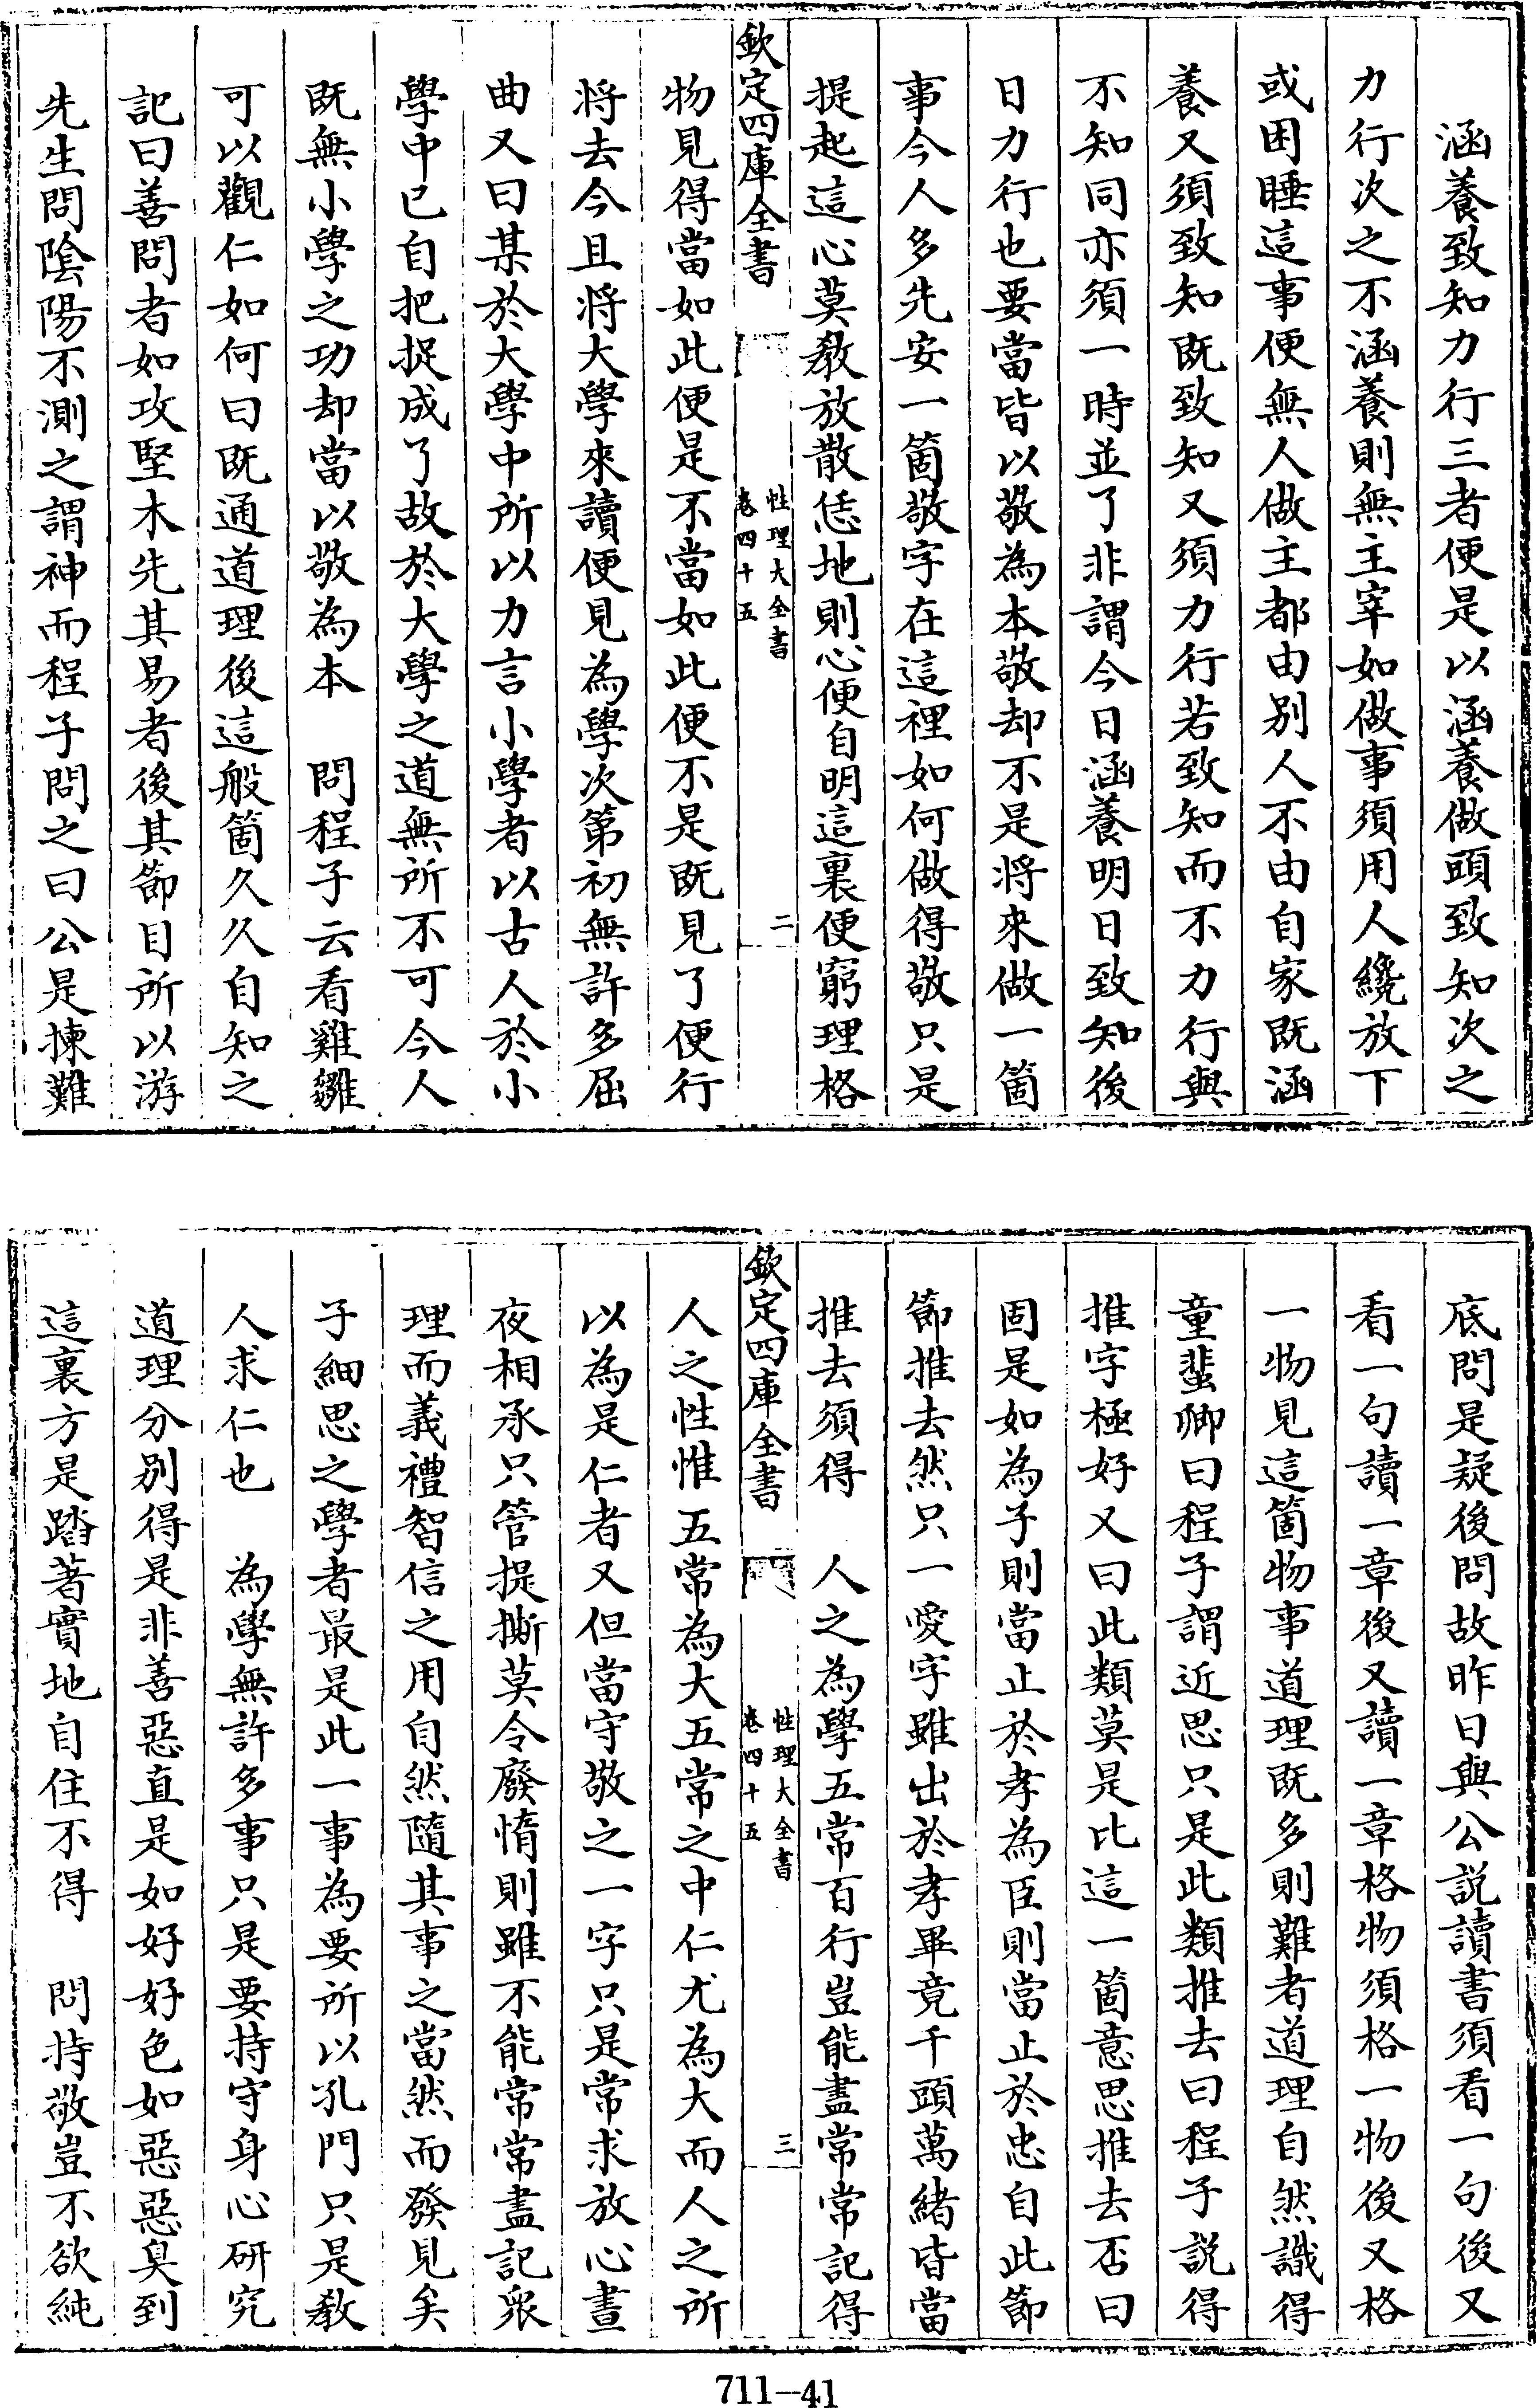 涵養致知力行三者便是以涵養做頭致知次之
力行次之不涵養則無主宰如做事須用人纔放下
或困睡這事便無人做主都由別人不由自家既涵
養又須致知既致知又須力行若致知而不力行與
不知同亦須一時並了非謂今日涵養明日致知後
日力行也要當皆以敬為本敬却不是將來做一箇
事今人多先安一箇敬字在這裡如何做得敬只是
提起這心莫教放散恁地則心便自明這裏便窮理格
欽定四庫全書
性理大全書
卷四十五
二
物見得當如此便是不當如此便不是既見了便行
將去今且將大學來讀便見為學次第初無許多屈
曲又曰某於大學中所以力言小學者以古人於小
學中已自把捉成了故於大學之道無所不可今人
既無小學之功却當以敬為本　問程子云看雞雛
可以觀仁如何曰既通道理後這般箇久久自知之
記曰善問者如攻堅木先其易者後其節目所以游
先生問陰陽不測之謂神而程子問之曰公是揀難
底問是疑後問故昨日與公説讀書須看一句後又
看一句讀一章後又讀一章格物須格一物後又格
一物見這箇物事道理既多則難者道理自然識得
童蜚卿曰程子謂近思只是此類推去曰程子説得
推字極好又曰此類莫是比這一箇意思推去否曰
固是如為子則當止於孝為臣則當止於忠自此節
節推去然只一愛字雖出於孝畢竟千頭萬緒皆當
推去須得　人之為學五常百行豈能盡常常記得
欽定四庫全書
性理大全書
卷四十五
三
人之性惟五常為大五常之中仁尤為大而人之所
以為是仁者又但當守敬之一字只是常求放心晝
夜相承只管提撕莫令廢惰則雖不能常常盡記衆
理而義禮智信之用自然隨其事之當然而發見矣
子細思之學者最是此一事為要所以孔門只是教
人求仁也　為學無許多事只是要持守身心研究
道理分別得是非善惡直是如好好色如惡惡臭到
這裏方是踏著實地自住不得　問持敬豈不欲純
711-41